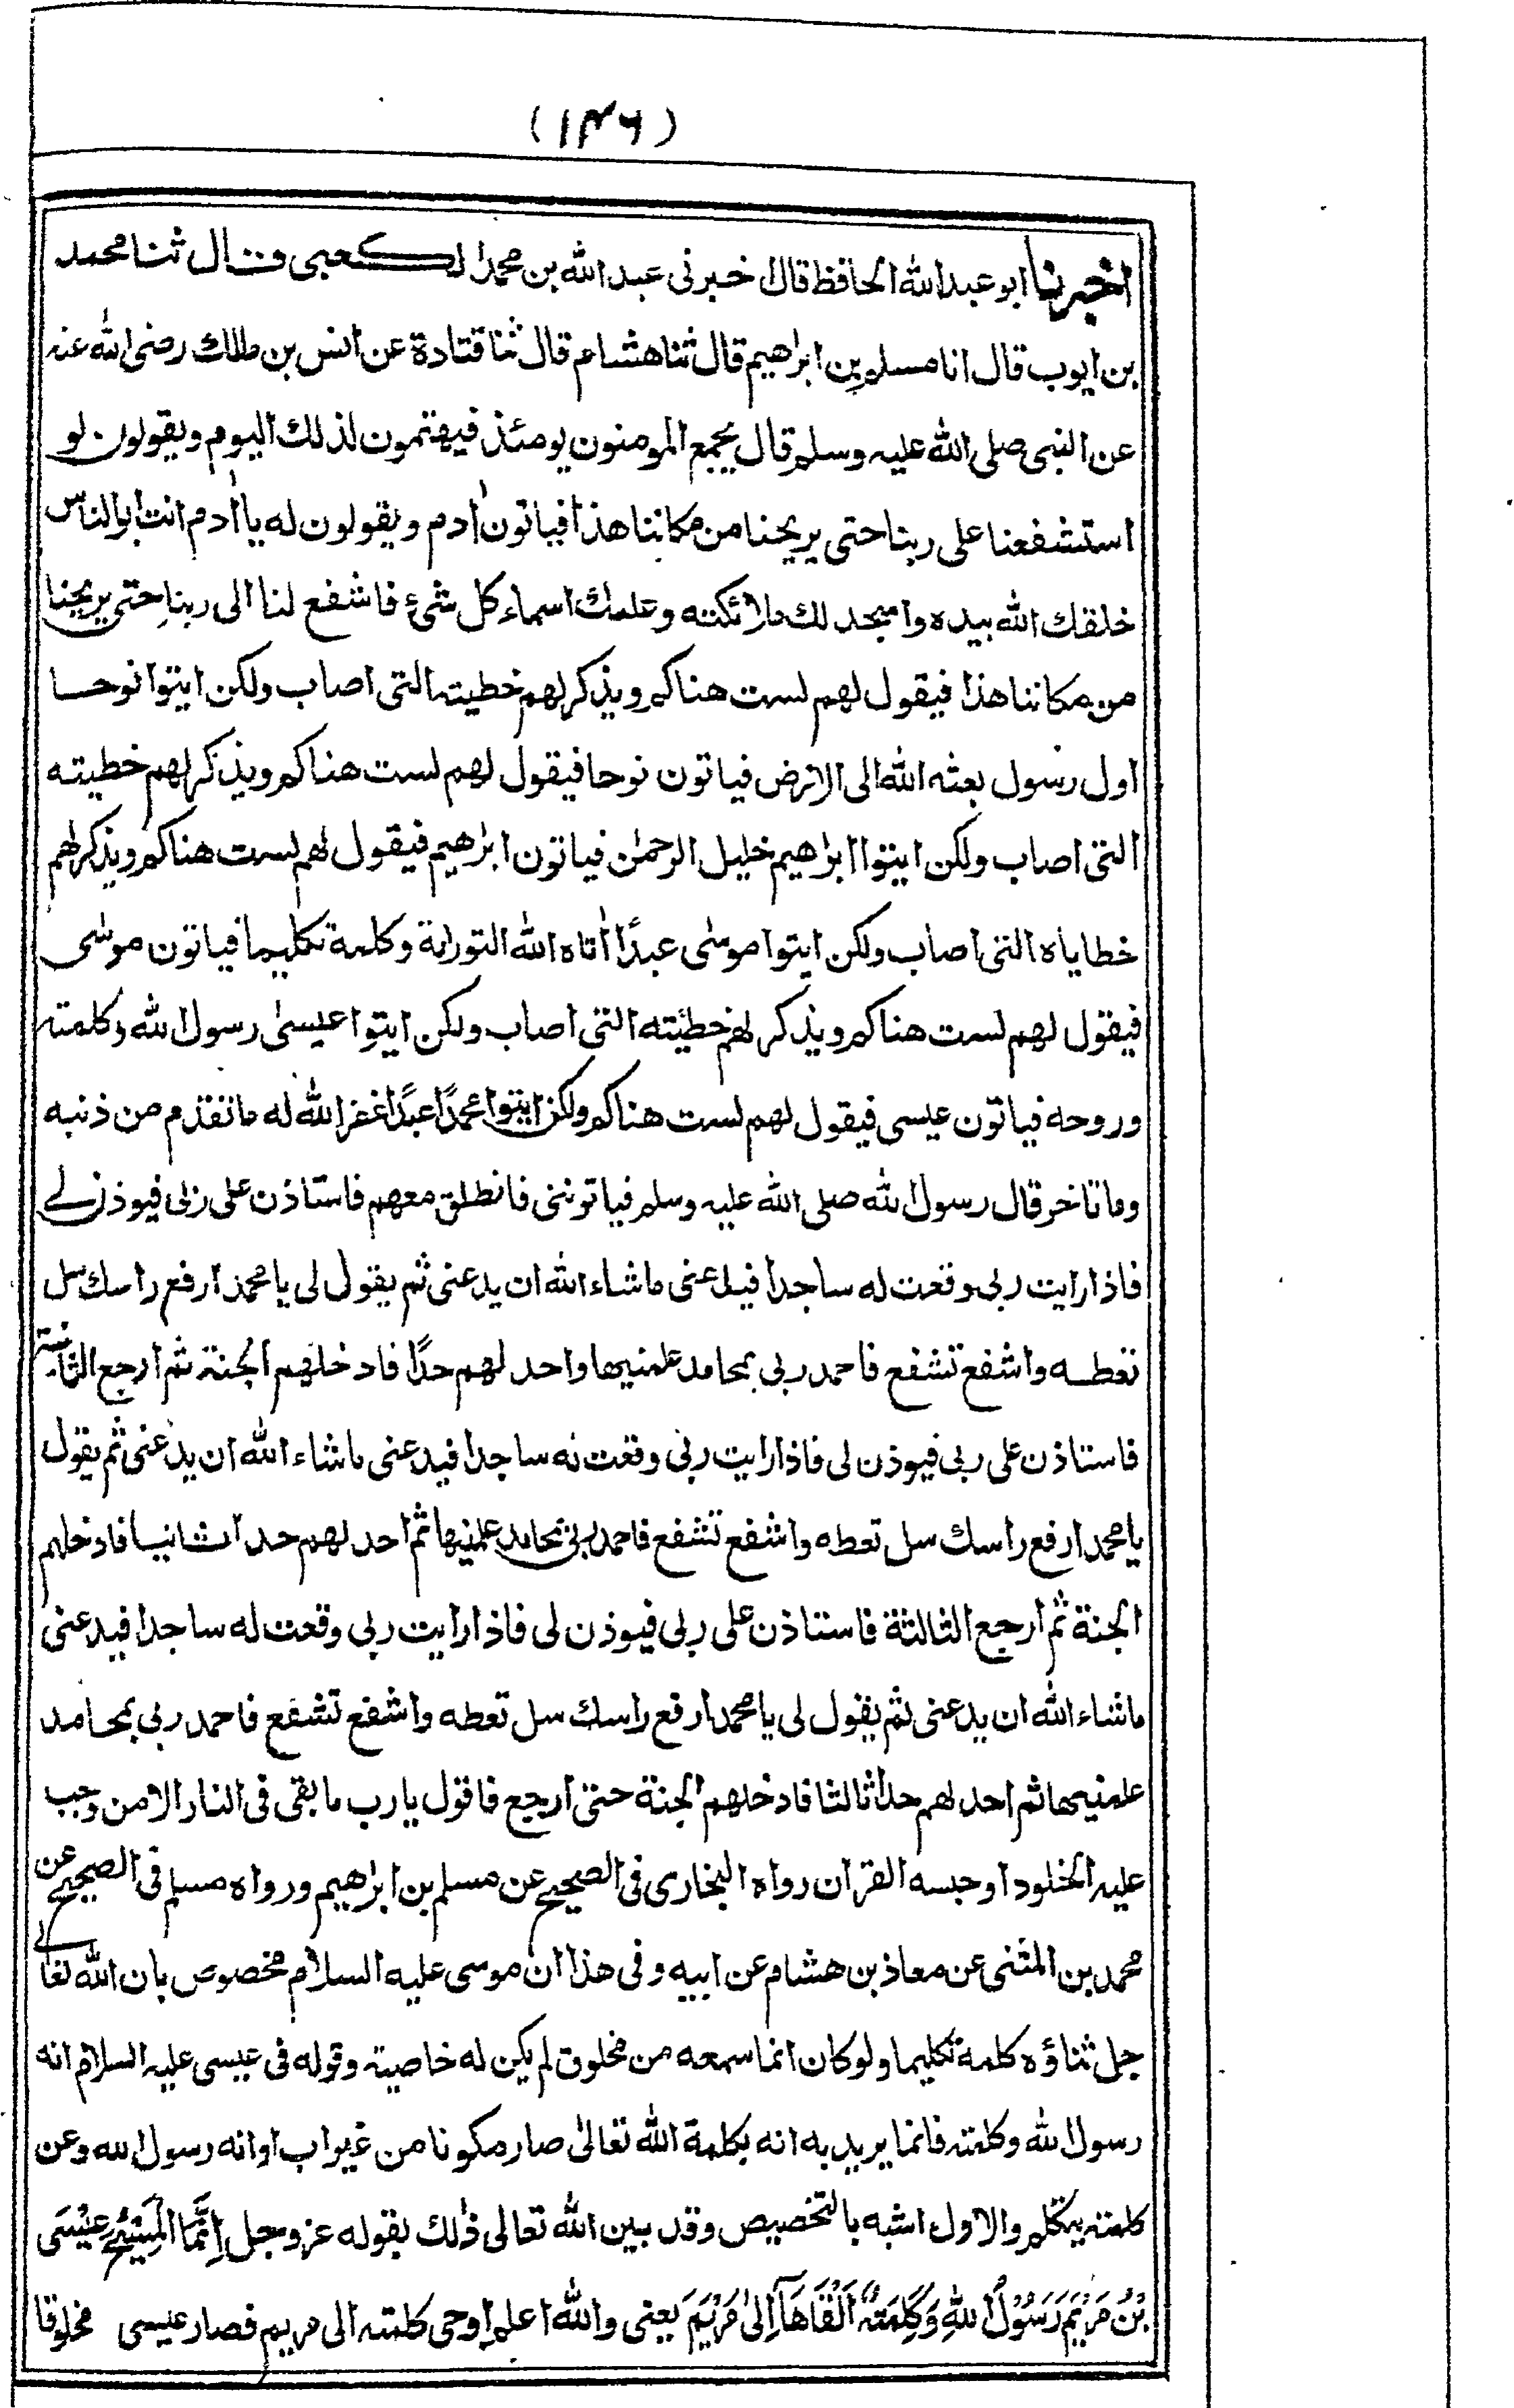 (۱۴۶)
اخبرنا ابو عبد الله الحافظ قال اخبرنى عبد الله بن محمد الكعبى قال ثنا محمد
بن ايوب قال انا مسلم بن ابراهيم قال ثنا هشام قال ثنا قتادة عن انس بن مالك رضى الله عنه
عن النبى صلى الله عليه وسلم قال يجمع المومنون يومئذ فيهتمون لذلك اليوم ويقولون لو
استشفعنا على ربنا حتى يريحنا من مكاننا هذا فياتون اٰدم ويقولون له يا اٰدم انت ابو الناس
خلقك الله بيده واسجد لك ملائكته وعلمك اسماء كل شىء فاشفع لنا الى ربنا حتى يريحنا
من مكاننا هذا فيقول لهم لست هناكم ويذكر لهم خطيته التى اصاب ولكن ايتوا نوحا
اول رسول بعثه الله الى الارض فياتون نوحا فيقول لهم لست هناكم ويذكر لهم خطيته
التى اصاب ولكن ايتوا ابراهيم خليل الرحمٰن فياتون ابرٰهيم فيقول لهم لست هناكم ويذكر لهم
خطاياه التى اصاب ولكن ايتوا موسٰى عبدًا اٰتاه الله التوراة وكلمة تكليما فياتون موسٰى
فيقول لهم لست هناكم ويذكر لهم خطيئته التى اصاب ولكن ايتوا عيسىٰ رسول الله وكلمته
وروحه فياتون عيسى فيقول لهم لست هناكم ولكن ايتوا محمدًا عبدًا غفر الله له ما تقدم من ذنبه
وما تاخر قال رسول الله صلى الله عليه وسلم فياتوننى فانطلق معهم فاستاذن على ربى فيوذن لے
فاذا رايت ربى وقعت له ساجدا فيدعنى ما شاء الله ان يدعنى ثم يقول لى يا محمد ارفع راسك سل
تعطه واشفع تشفع فاحمد ربى بمحامد علمنيها واحد لهم حدًا فادخلهم الجنة ثم ارجع الثانية
فاستاذن على ربى فيوذن لى فاذا رايت ربى وقعت له ساجدا فيدعنى ما شاء الله ان يدعنى ثم يقول
يا محمد ارفع راسك سل تعطه واشفع تشفع فاحمد ربى بمحامد علمنيها ثم احد لهم حدا ثانيا فادخلهم
الجنة ثم ارجع الثالثة فاستاذن على ربى فيوذن لى فاذا رايت ربى وقعت له ساجدا فيدعنى
ما شاء الله ان يدعنى ثم يقول لى يا محمد ارفع راسك سل تعطه واشفع تشفع فاحمد ربى بمحامد
علمنيها ثم احد لهم حدا ثالثا فادخلهم الجنة حتى ارجع فاقول يا رب ما بقى فى النار الا من وجب
عليه الخلود او حبسه القراٰن رواه البخارى فى الصحيح عن مسلم بن ابراهيم ورواه مسلم فى الصحيح عن
محمد بن المثنى عن معاذ بن هشام عن ابيه وفى هذا ان موسى عليه السلام مخصوص بان الله تعالے
جل ثناؤه كلمه تكليما ولو كان انما سمعه من مخلوق لم يكن له خاصية وقوله فى عيسى عليه السلام انه
رسول الله وكلمته فانما يريد به انه بكلمة الله تعالىٰ صار مكونا من غير اب او انه رسول الله وعن
كلمته يتكلم والاول اشبه بالتخصيص وقد بين الله تعالى ذٰلك بقوله عز وجل اِنَّمَا الْمَسِيْحُ عِيْسَى
بْنُ مَرْيَمَ رَسُوْلُ اللهِ وَكَلِمَتُهٗ اَلْقَاهَآ اِلىٰ مَرْيَمَ يعنى والله اعلم اوحى كلمته الى مريم فصار عيسى مخلوقا